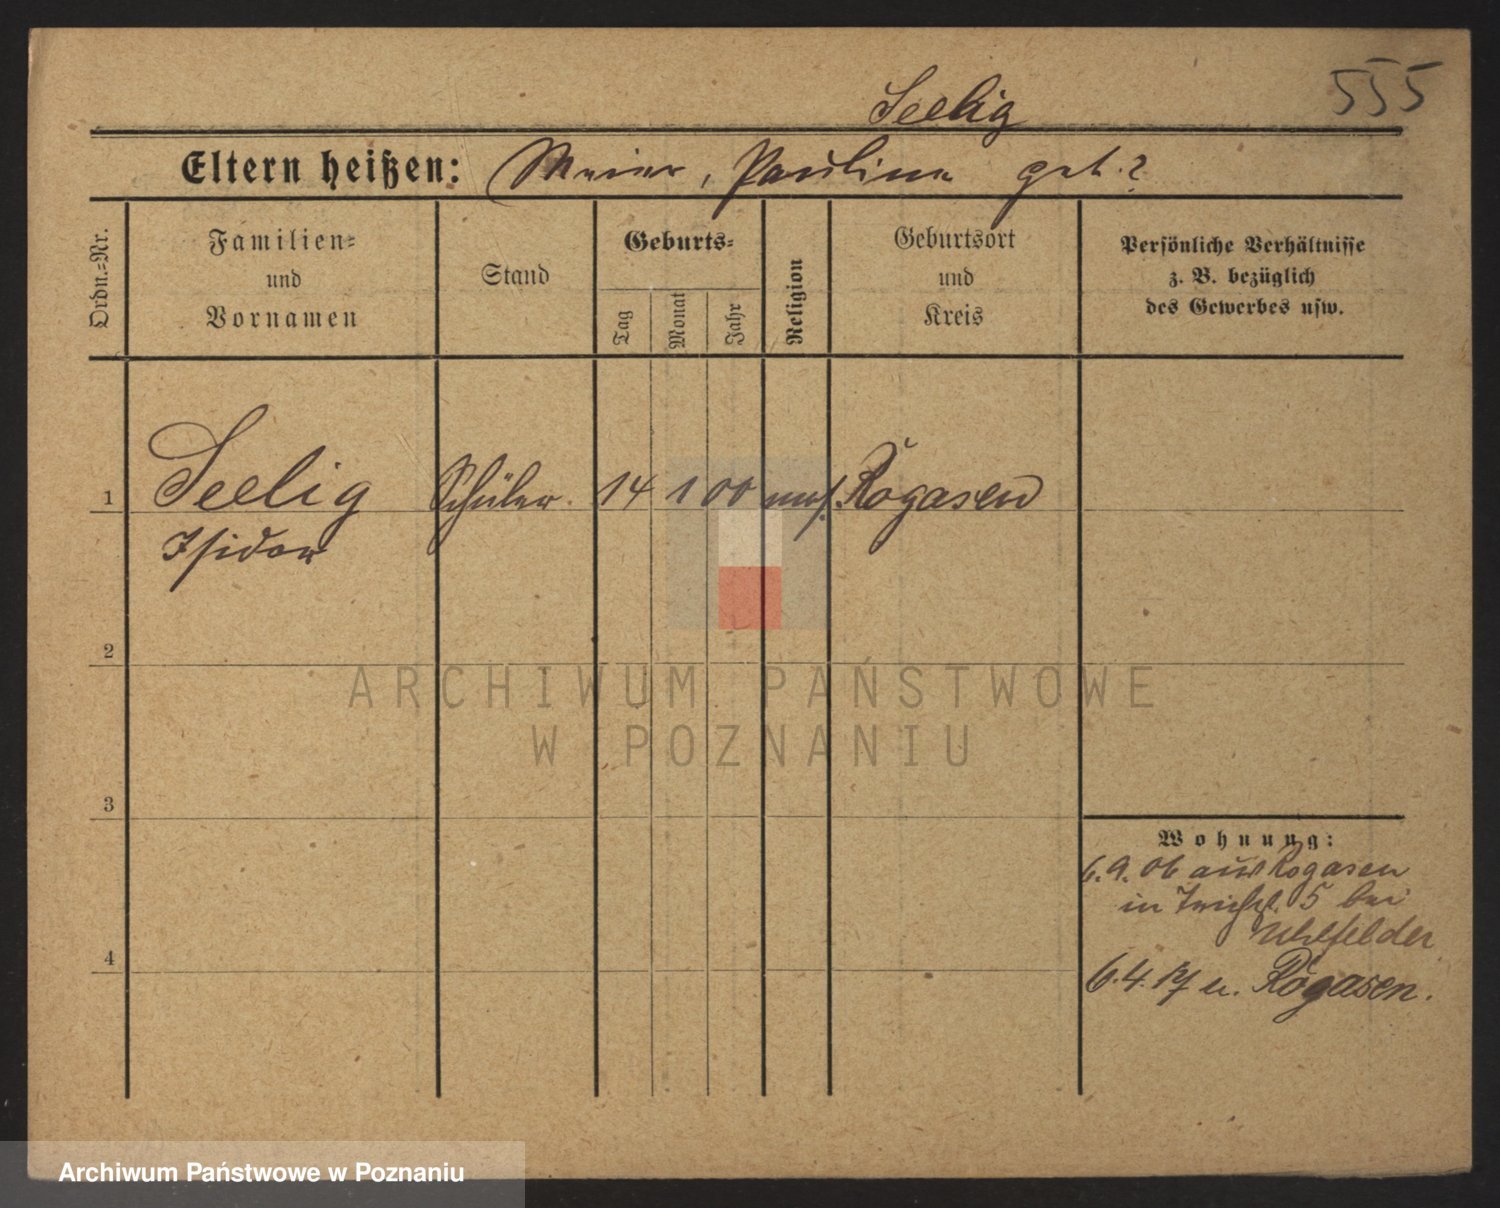 555
Seelig
Eltern heißen: Meier, Pauline geb. ?
Ordn.=Nr.
Familien=
und
Vornamen
Stand
Geburts=
Tag
Monat
Jahr
Religion
Geburtsort
und
Kreis
Persönliche Verhältnisse
z. B. bezüglich
des Gewerbes usw.
1
Seelig Schüler 14 1 00 mos. Rogasen
Isidor
2
3
4
Wohnung:
6.9.06 aus Rogasen
in 5 bei
Uhlfelder
6.4. n. Rogasen.
ARCHIWUM PAŃSTWOWE
W POZNANIU
Archiwum Państwowe w Poznaniu